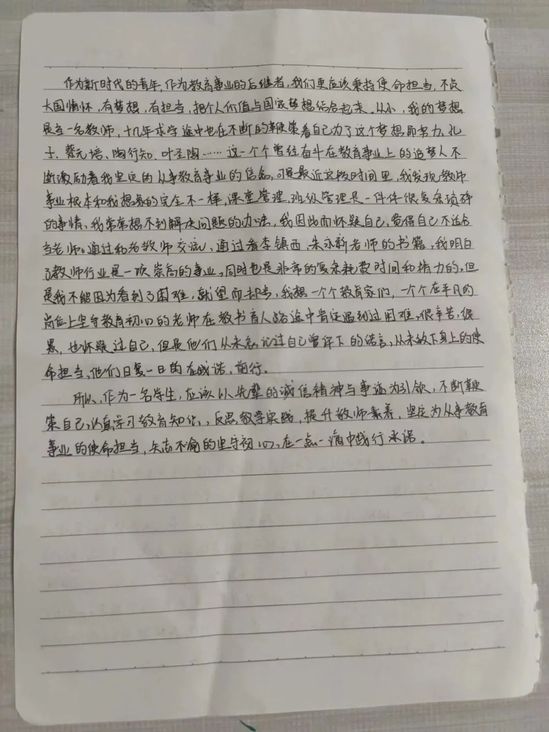 作为新时代的青年,作为教育事业的后继者,我们更应该秉持使命担当,不负
大国情怀,有梦想,有担当,把个人价值与国家梦想结合起来。从小,我的梦想
是当一名教师,十几年求学途中也在不断的鞭策着自己为了这个梦想而努力,孔
子、蔡元培、陶行知、叶圣陶……这一个个曾经奋斗在教育事业上的追梦人不
断激励着我坚定的从事教育事业的信念。可是最近这段时间里,我发现教师
事业根本和我想象的完全不一样,课堂管理、班级管理是一件件很复杂琐碎
的事情,我常常想不到解决问题的办法,我因此而怀疑自己,觉得自己不适合
当老师。通过和老教师交流、通过看李镇西、朱永新老师的书籍,我明白
了教师行业是一项崇高的事业,同时也是非常的复杂耗费时间和精力的,但
是我不能因为看到了困难,就望而却步,我想一个个教育家们,一个个在平凡的
岗位上坚守教育初心的老师在教书育人路途中肯定遇到过困难,很辛苦,很
累,也怀疑过自己,但是他们从未忘记过自己曾许下的诺言,从未放下身上的使
命担当,他们日复一日的在践诺,前行。
所以,作为一名学生,应该以先辈的诚信精神与事迹为引领,不断鞭
策自己,认真学习教育知识,反思教学实践,提升教师素养,坚定为从事教育
事业的使命担当,矢志不渝的坚守初心,在一点一滴中践行承诺。